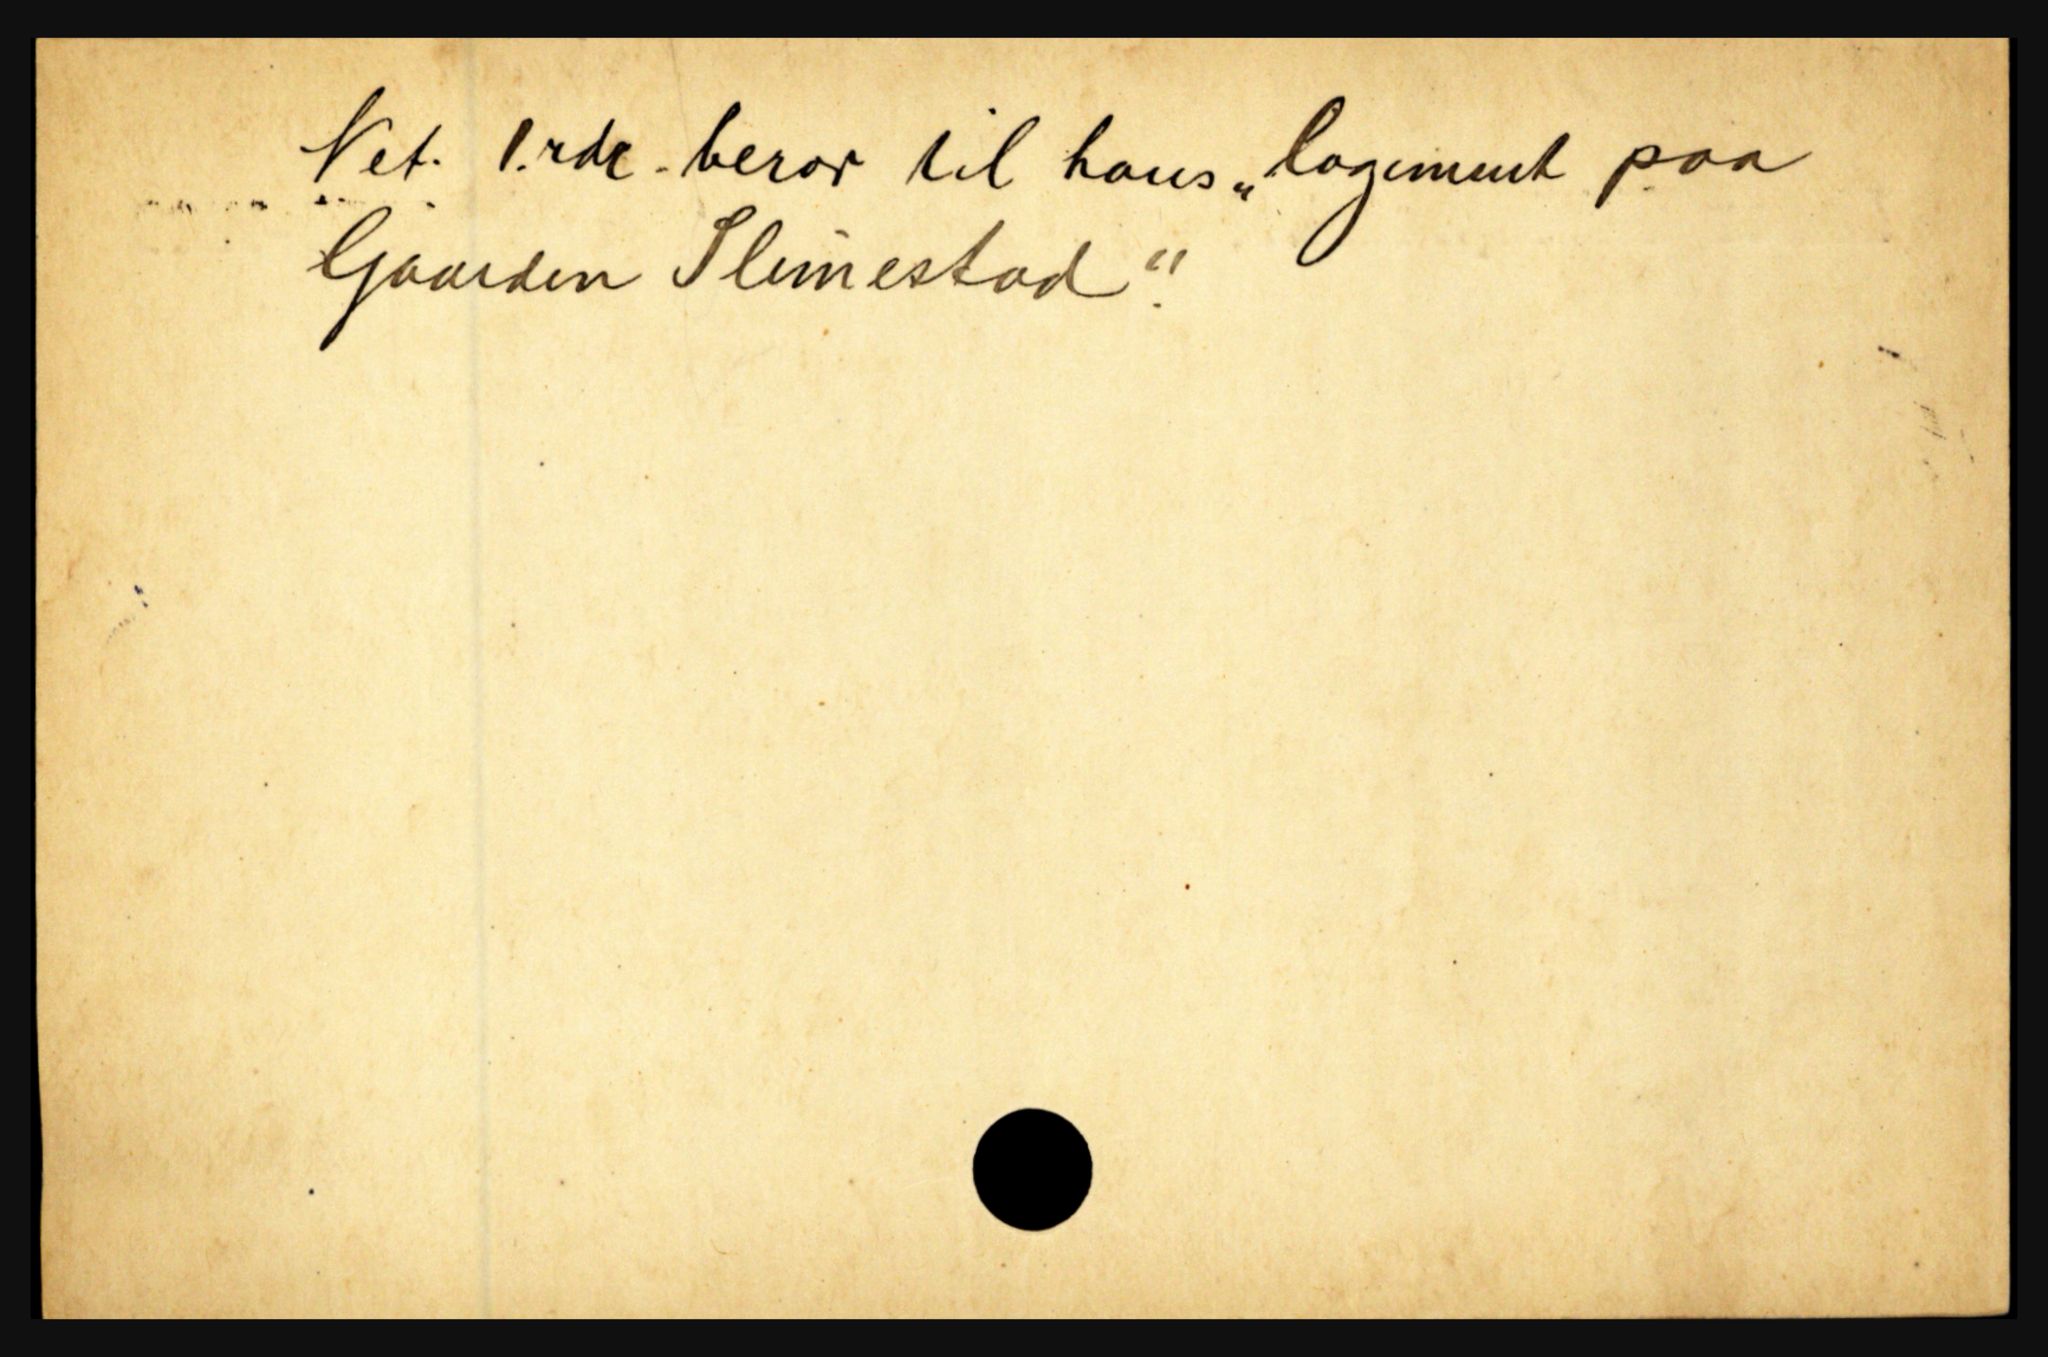 Vet. 1.rde. beror til hans „logiment paa
Gaarden Slimestad".